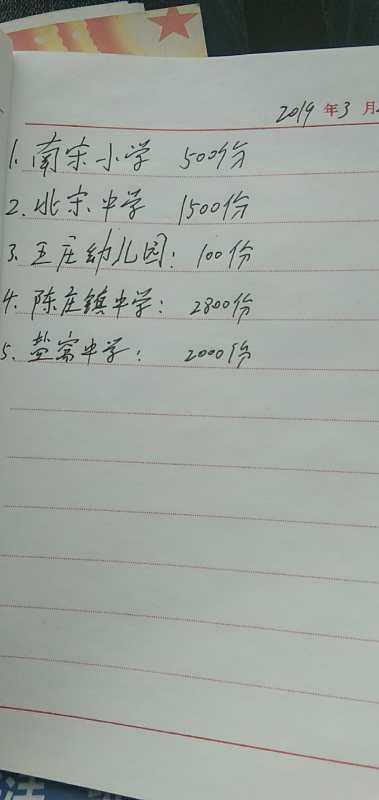 2019年3月
1. 南宋小学 500份
2. 北宋中学 1500份
3. 王庄幼儿园: 100份
4. 陈庄镇中学: 2800份
5. 盐窝中学: 2000份